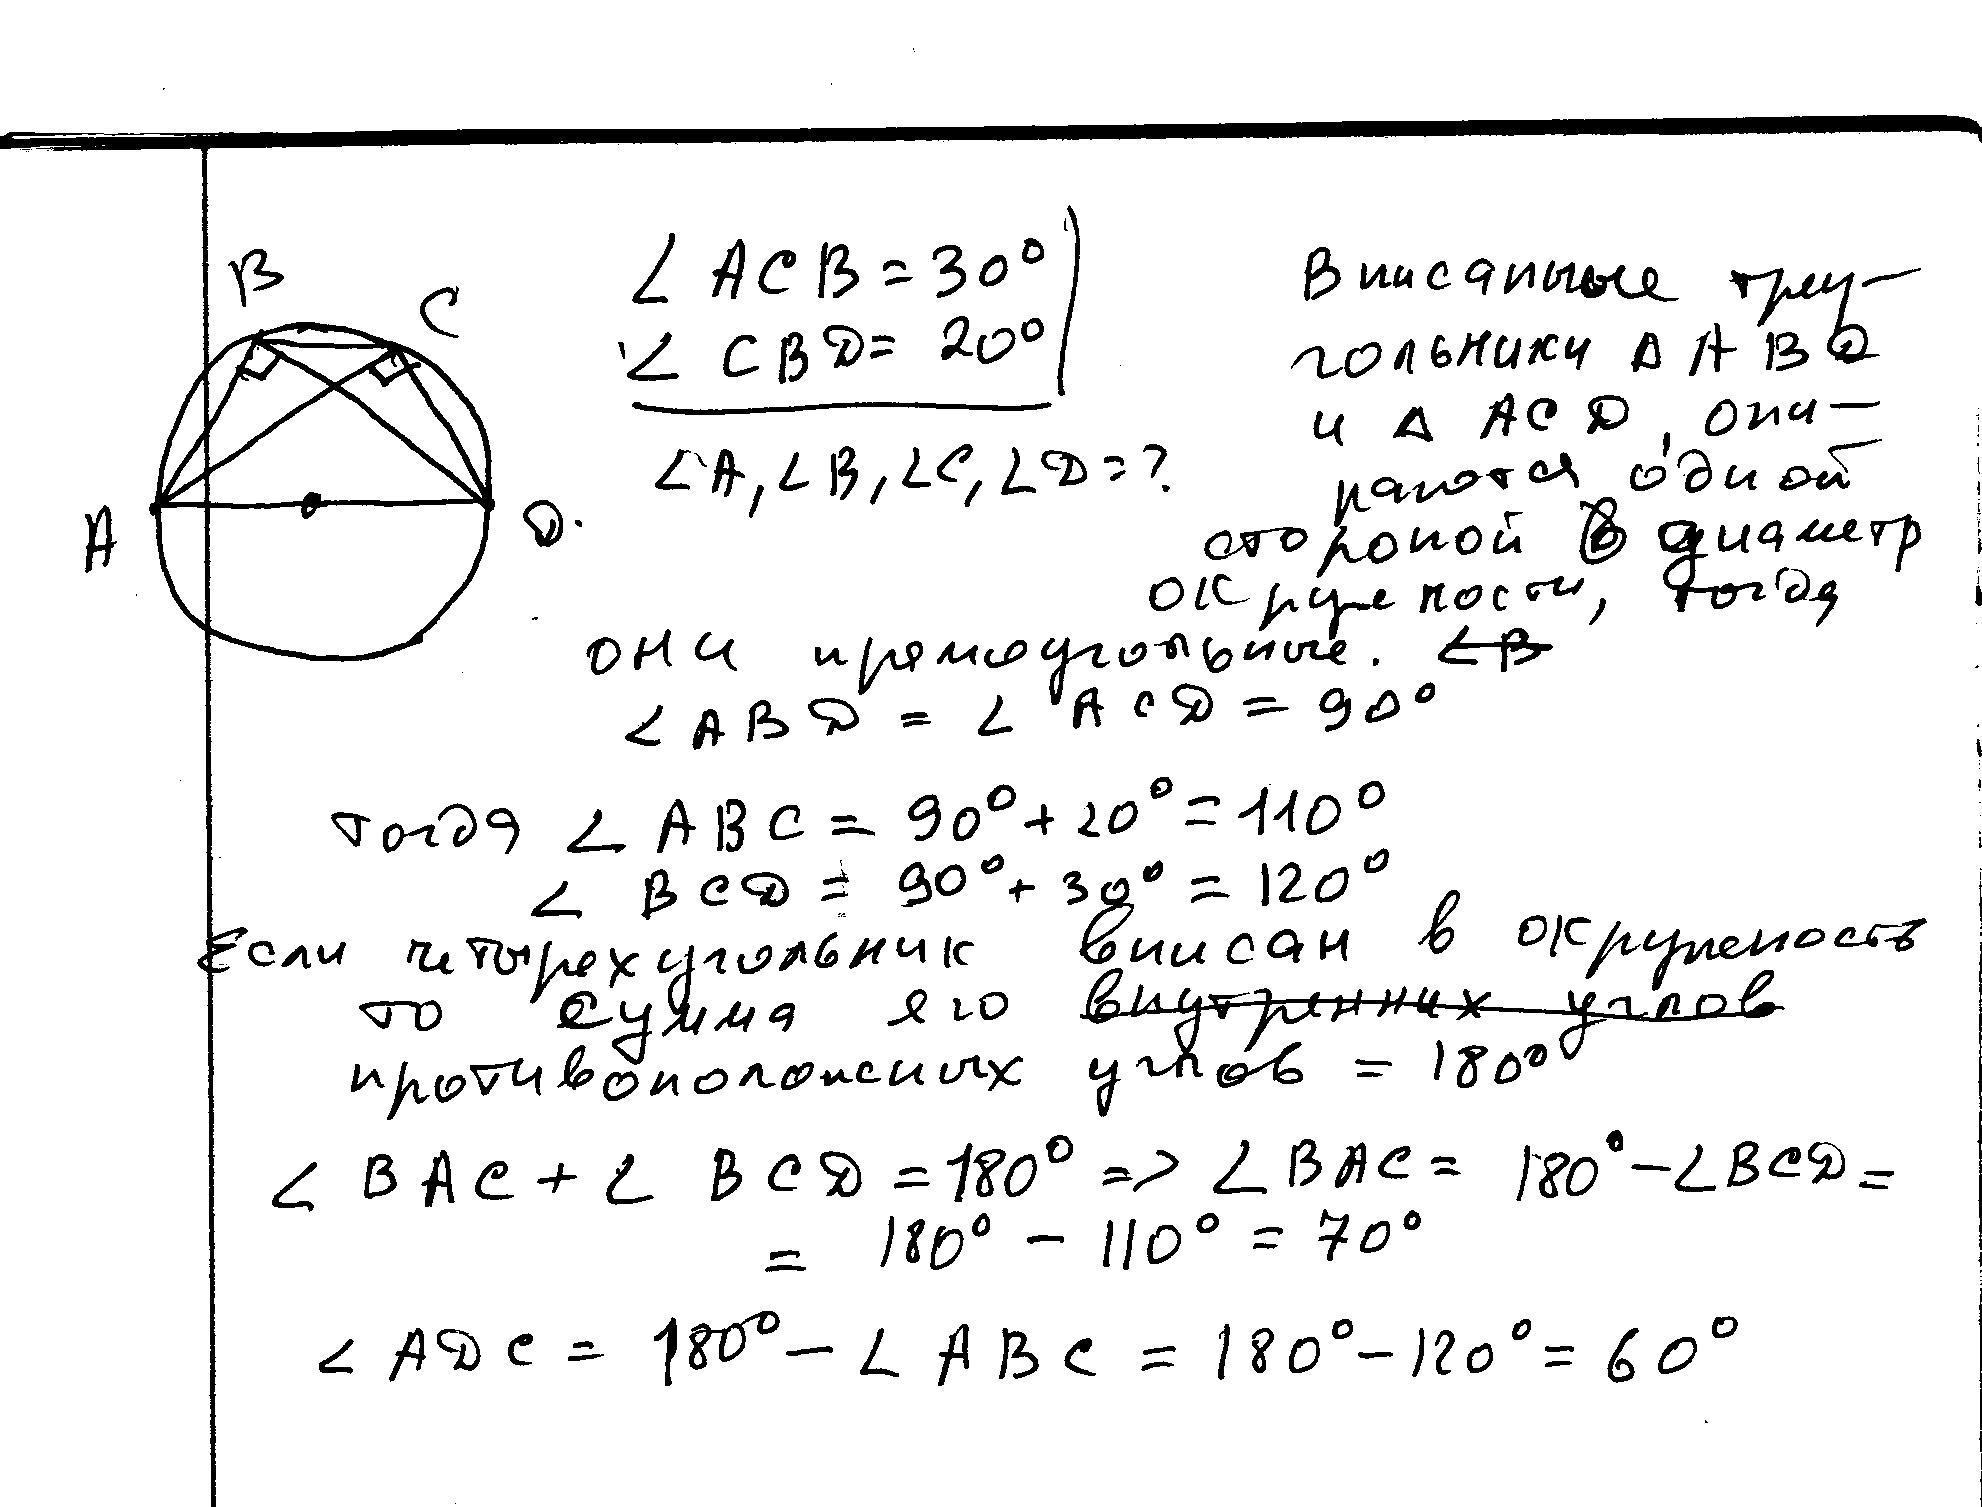 B
C
A
D.
∠ ACB = 30°
∠ CBD = 20°
∠A, ∠B, ∠C, ∠D = ?
Вписаные треу-
гольники Δ ABD
и Δ ACD, опи-
раются одной
стороной в диаметр
окружности, тогда
они прямоугольные. ∠B
∠ ABD = ∠ ACD = 90°
тогда ∠ ABC = 90° + 20° = 110°
∠ BCD = 90° + 30° = 120°
Если четырехугольник вписан в окружность
то сумма его внутренних углов
противоположных углов = 180°
∠ BAC + ∠ BCD = 180° => ∠ BAC = 180° - ∠BCD =
= 180° - 110° = 70°
∠ ADC = 180° - ∠ ABC = 180° - 120° = 60°